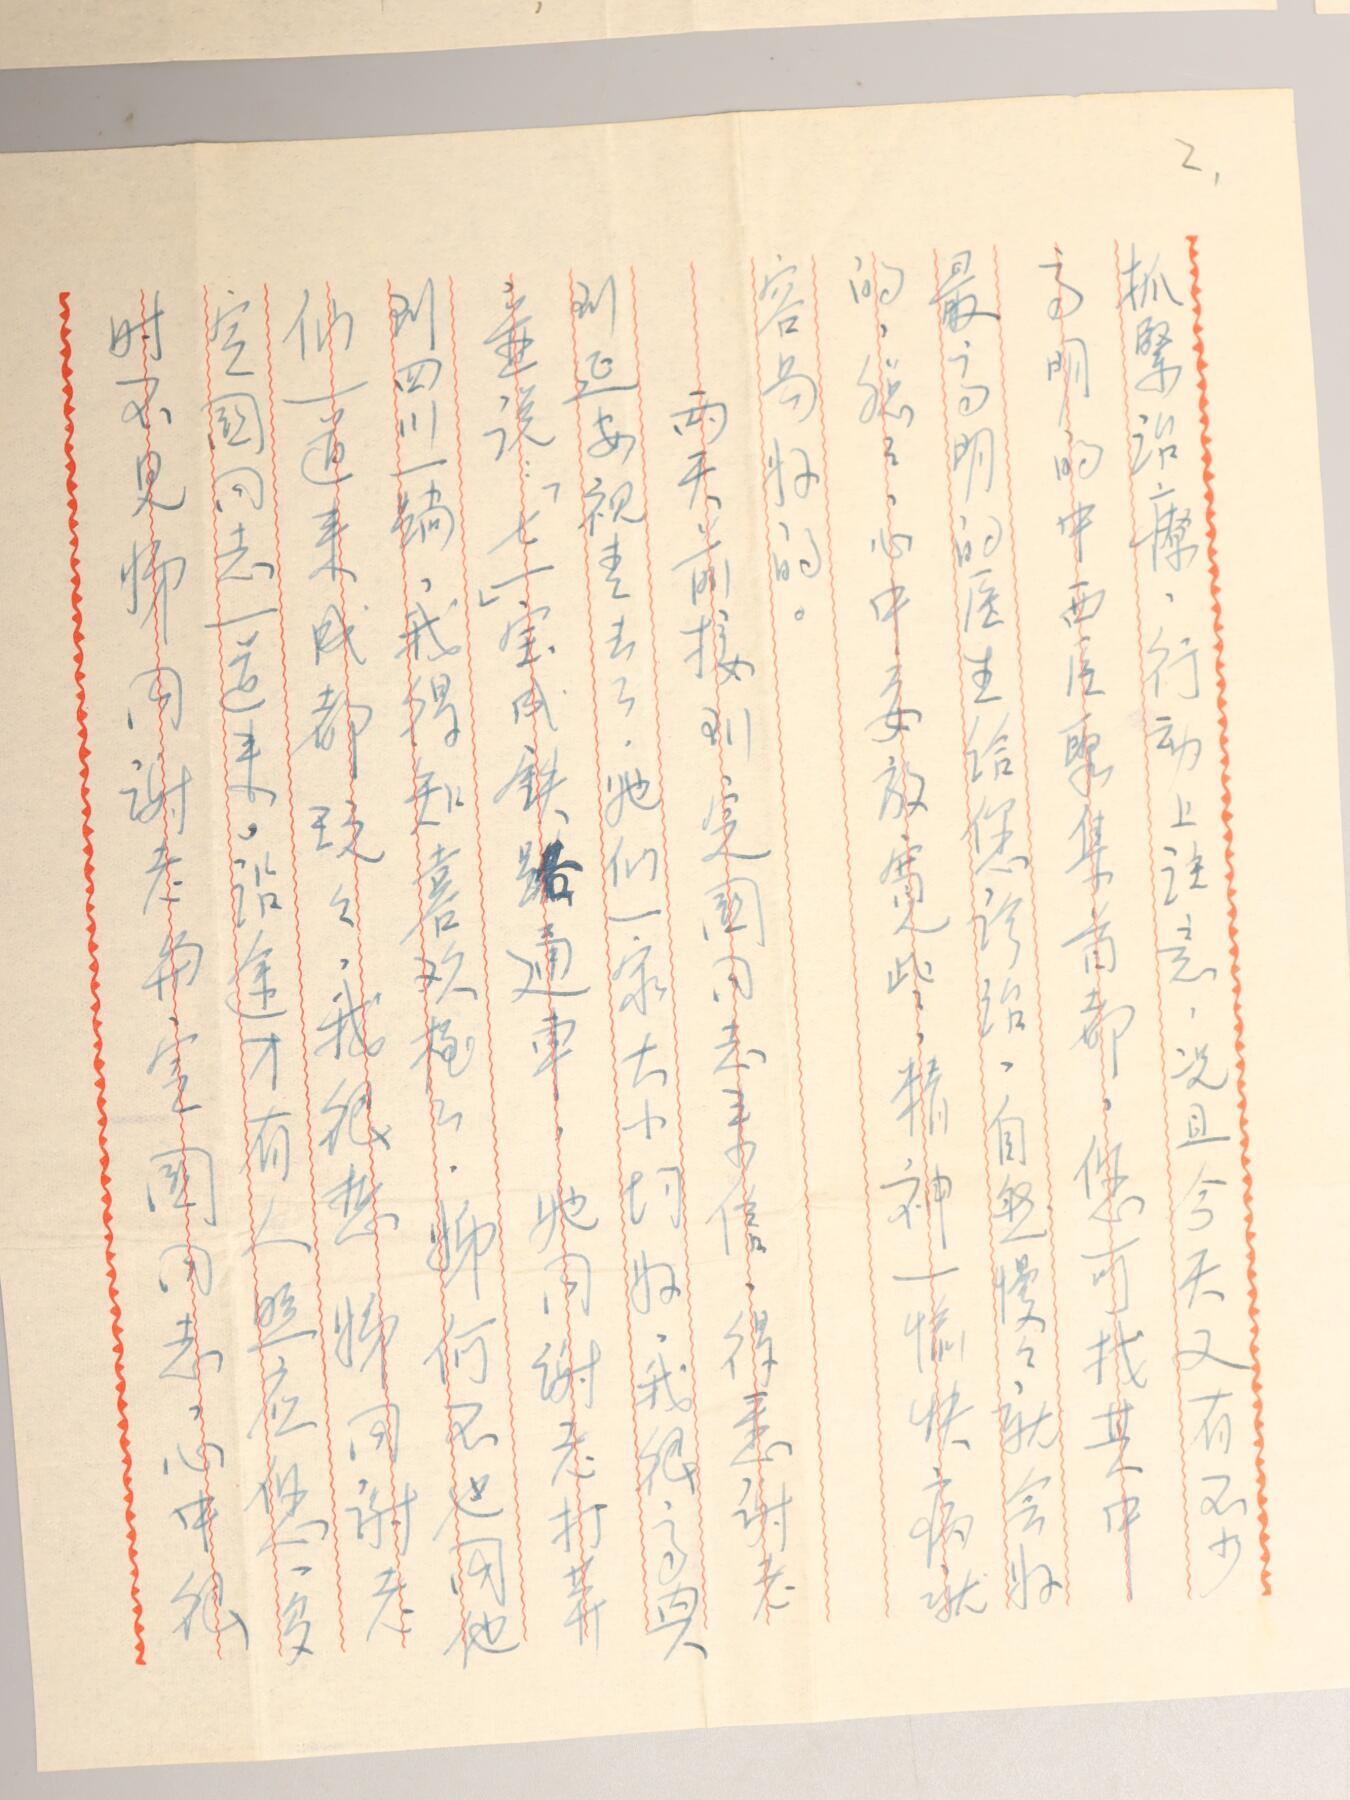 2,
抓緊治療，行动上注意，况且今天又有不少
高明的中西医聚集首都，您可找其中
最高明的医生给您診治，自然慢々就会好
的，總之，心中要放寬些，精神一愉快病就
容易好的。
两天前接到定國同志来信，得悉謝老
到延安視查去了，她们一家大小均好，我很高興
並说：「七一」宝成铁路通車，她同谢老打算
到四川一趟，我得知喜欢极了，姊何不也同他
们一道来成都玩々，我很想姊同谢老
定國同志一道来。沿途才有人照应您，多
时不見姊同谢老和定國同志，心中很